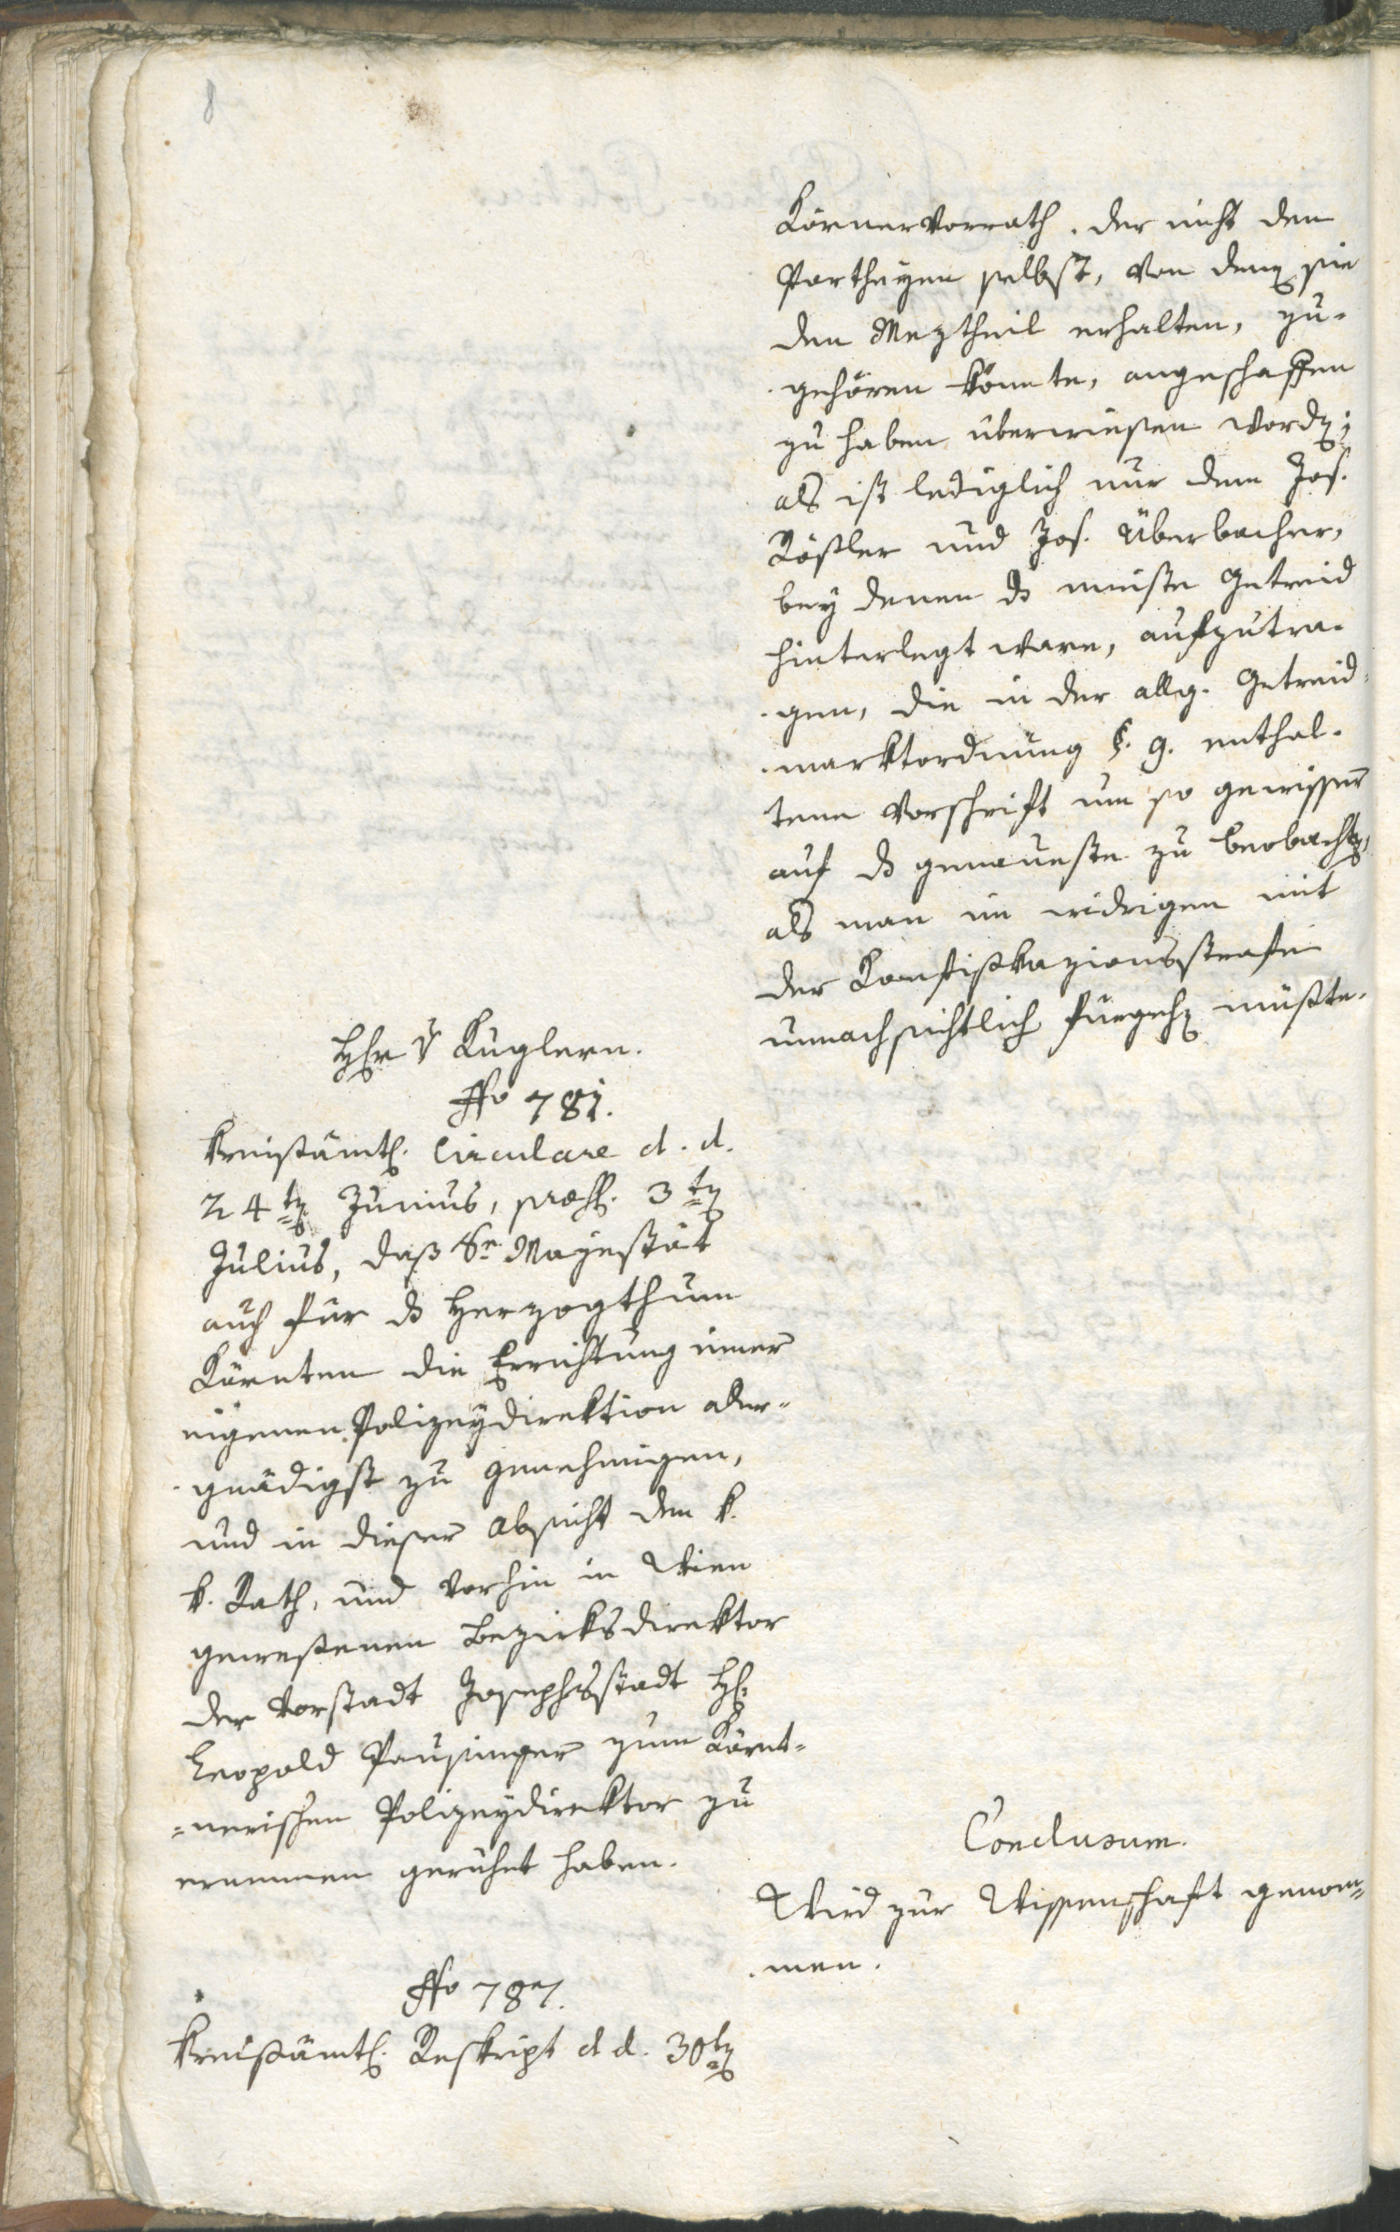 8
Körnervorrath, der nicht den
Partheyen selbst, von denen sie
den Meztheil erhalten, zu-
gehören könnte, angeschaffen
zu haben überwiesen worden;
als ist lediglich nur dem Jos.
Rößler und Jos. Überbacher,
bey denen ds meiste Getreid
hinterlegt ware, aufzutra-
gen, die in der allg. Getreid-
marktordnung §. 9. enthal-
tene Vorschrift um so gewisser
auf ds genaueste zu beobachten,
als man im widrigen mit
der Konfiskazionsstrafe
unnachsichtlich fürgehen müßte.
Hr v Kuglern.
No 781.
Kreisämtl. Circulare d. d.
24ten Junius, praes. 3ten
Julius, daß Se Majestät
auch für ds Herzogthum
Kärnten die Errichtung einer
eigenen Polizeydirektion aller-
gnädigst zu genehmigen,
und in dieser Absicht den k.
k. Rath, und vorhin in Wien
gewesenen Bezirksdirektor
der Vorstadt Josephsstadt H:
Leopold Pausinger zum Kärnt-
nerischen Polizeydirektor zu
ernennen geruhet haben.
Conclusum.
Wird zur Wissenschaft genom-
men.
No 787.
Kreisämtl. Reskript d d. 30ten